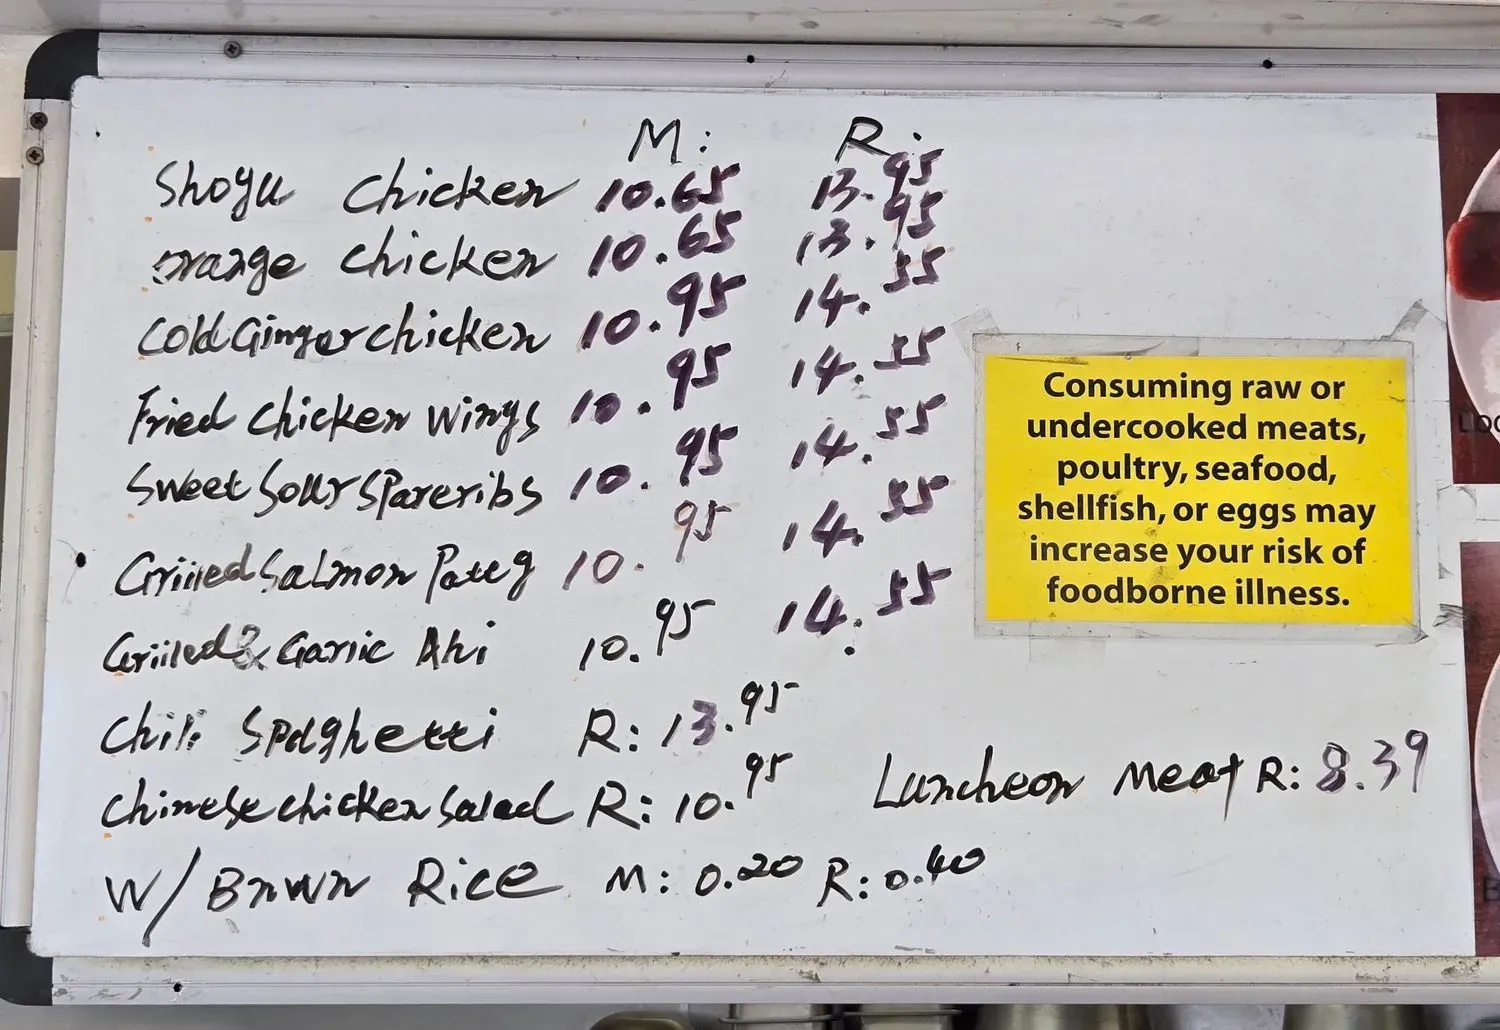 M: R:
Shoyu Chicken 10.65 13.95
orange chicken 10.65 13.95
Cold Ginger chicken 10.95 14.55
Fried Chicken Wings 10.95 14.55
Sweet Sour Spareribs 10.95 14.55
Grilled Salmon Patty 10.95 14.55
Grilled & Garlic Ahi 10.95 14.55
Chili Spaghetti R: 13.95
Chinese chicken Salad R: 10.95
Luncheon Meat R: 8.39
W/ Brown Rice M: 0.20 R: 0.40
Consuming raw or
undercooked meats,
poultry, seafood,
shellfish, or eggs may
increase your risk of
foodborne illness.